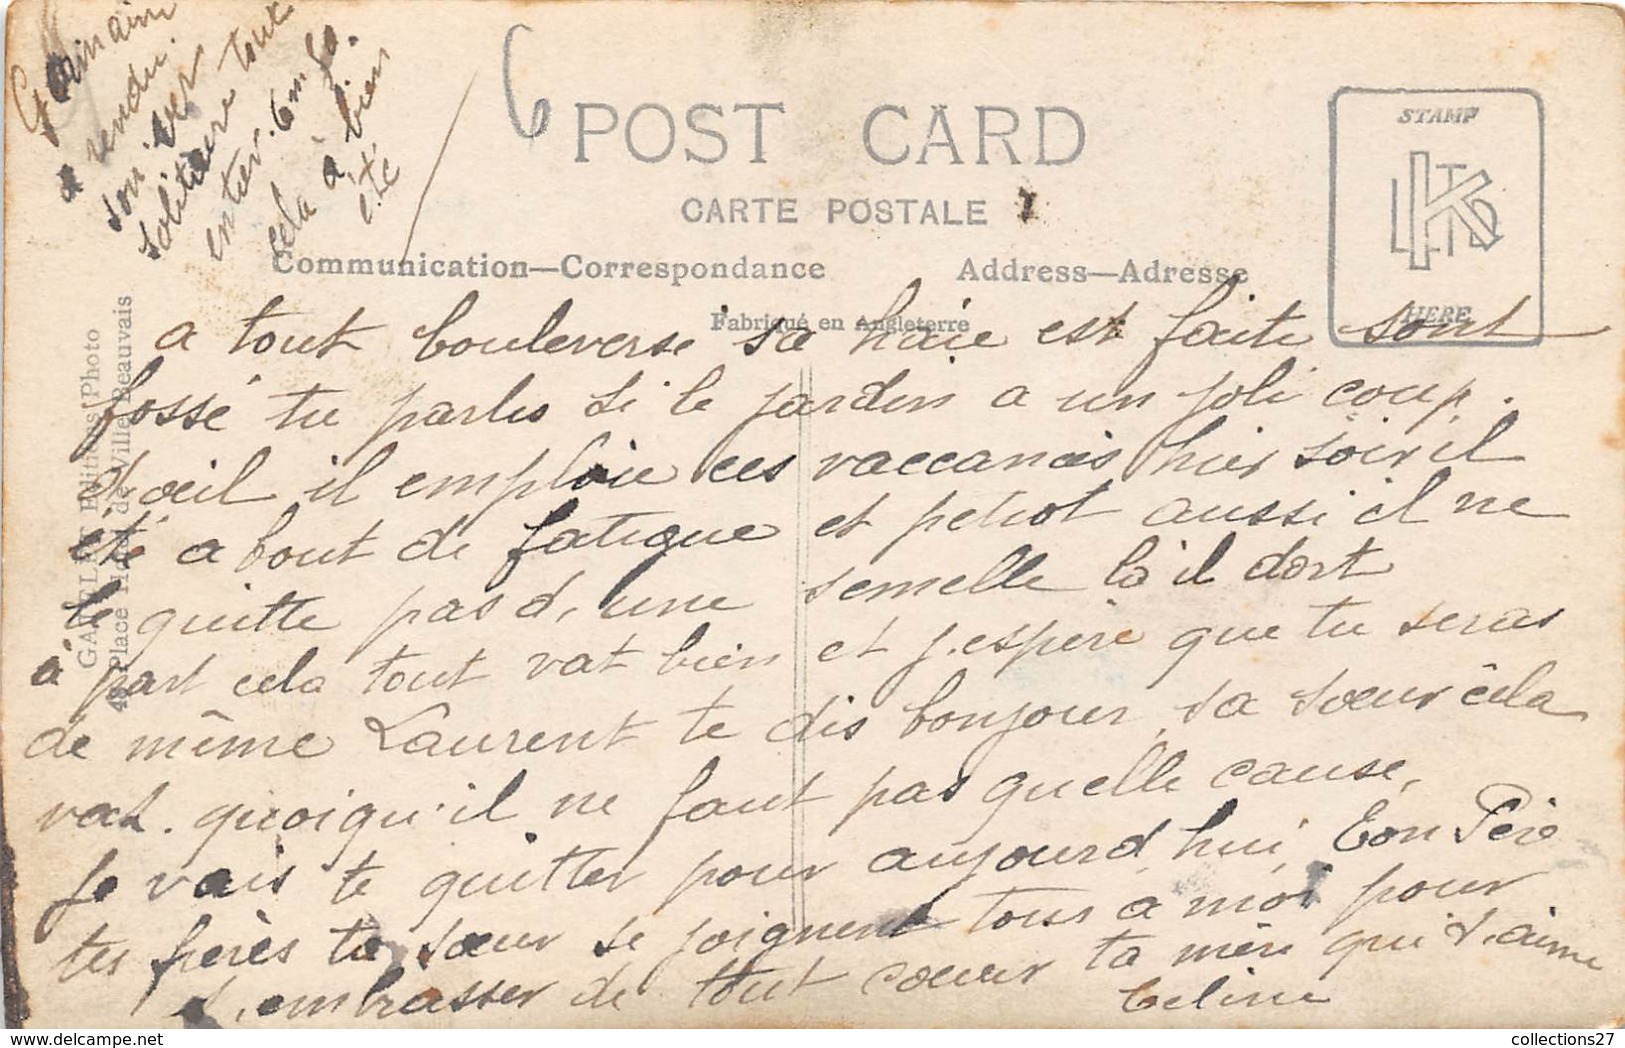 Germaine
a rendu
son ver
solitaire tout
entier. 6m 50.
cela à bien
été
6
POST CARD
CARTE POSTALE
Communication—Correspondance
Address—Adresse
Fabriqué en Angleterre
STAMP
K LTD
HERE
Editions Photo
48 Place Hotel de Ville Beauvais
a tout bouleverse sa haie est faite sont
fossé tu parles si le jardin a un joli coup.
d'oeil il emploie ces vaccances hier soir il
été a bout de fatigue et petiot aussi il ne
le quitte pas d, une semelle là il dort
à part cela tout vat bien et j.espère que tu seras
de même Laurent te dis bonjour sa soeur cela
vat. quoiqu'il ne faut pas quelle cause,
Je vais te quitter pour aujourd hui Ton Père
tes frères ta soeur se joignent tous a moi pour
t, embrasser de tout coeur ta mère qui t,aime
Celine
collections27